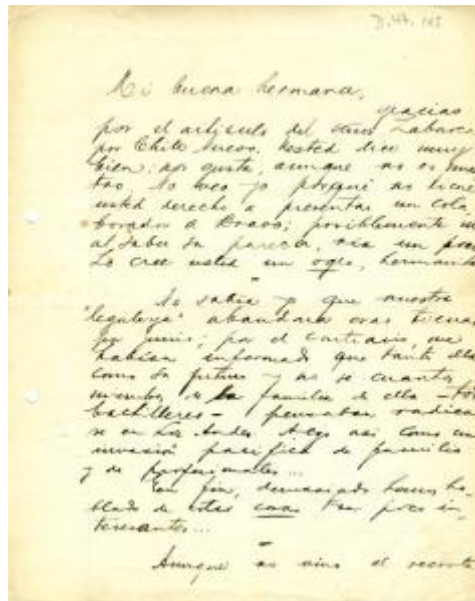 D.44.105
Mi buena hermana,
gracias
por el artículo del Labarca
por Chile Nuevo. Usted dice muy
bien: aun gusta, aunque no es
No veo yo porqué no tiene
usted derecho a presentar un cola
borador a posiblemente
al saber su parecer, ría un poco
Lo cree usted un ogro, hermanita
No sabía yo que nuestra
"leguleya" abandonara esas tierras
por el contrario, me
habían informado que tanto ella
como su futuro y no sé cuantos
miembros de la familia de ella - tos
bachilleres - pensaban radicar
se en Los Andes. Algo así como una
invasión pacífica de familias
y de profesionales...
En fin, demasiado hemos ha
blado de estas cosas tan poco in
teresantes...
Aunque no vino el recorte